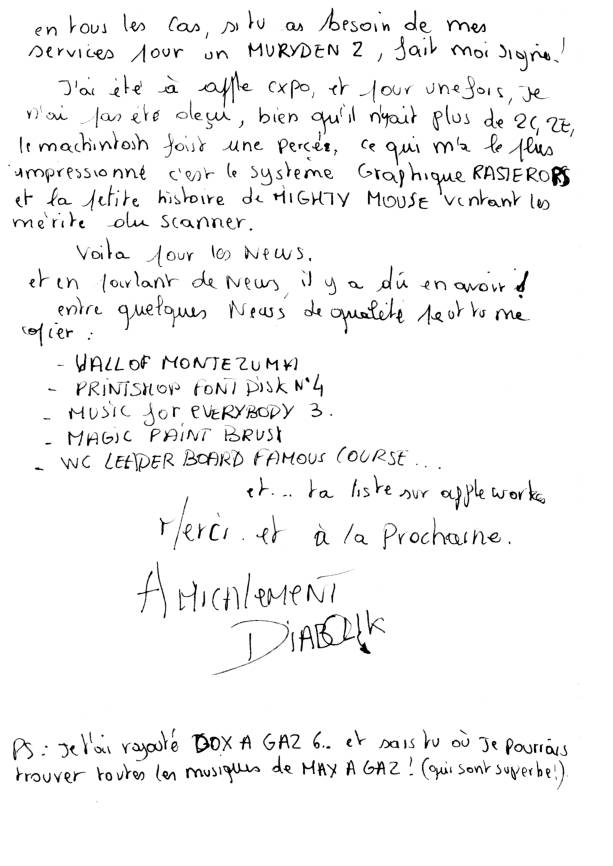 en tous les cas, si tu as besoin de mes
services pour un MURYDEN 2, fait moi signe!
J'ai été à apple expo, et pour une fois, je
n'ai pas été déçu, bien qu'il n'yait plus de 2C, 2E,
le machintosh fait une percée, ce qui m'a le plus
impressionné c'est le système Graphique RASTEROPS
et la petite histoire de MIGHTY MOUSE ventant les
mérite du scanner.
Voila pour les News.
et en parlant de News, il y a dû en avoir!
entre quelques News de qualité peut tu me
copier :
- WALL OF MONTEZUMA
- PRINTSHOP FONT DISK N°4
- MUSIC for EVERYBODY 3.
- MAGIC PAINT BRUSH
- WC LEADER BOARD FAMOUS COURSE...
et... ta liste sur appleworks
Merci. et à la Prochaine.
AMICAlEMENT
DIABOLIK
PS : Je t'ai rajouté DOX A GAZ 6.. et sais tu où Je pourrais
trouver toutes les musiques de MAX A GAZ ! (qui sont superbe!)